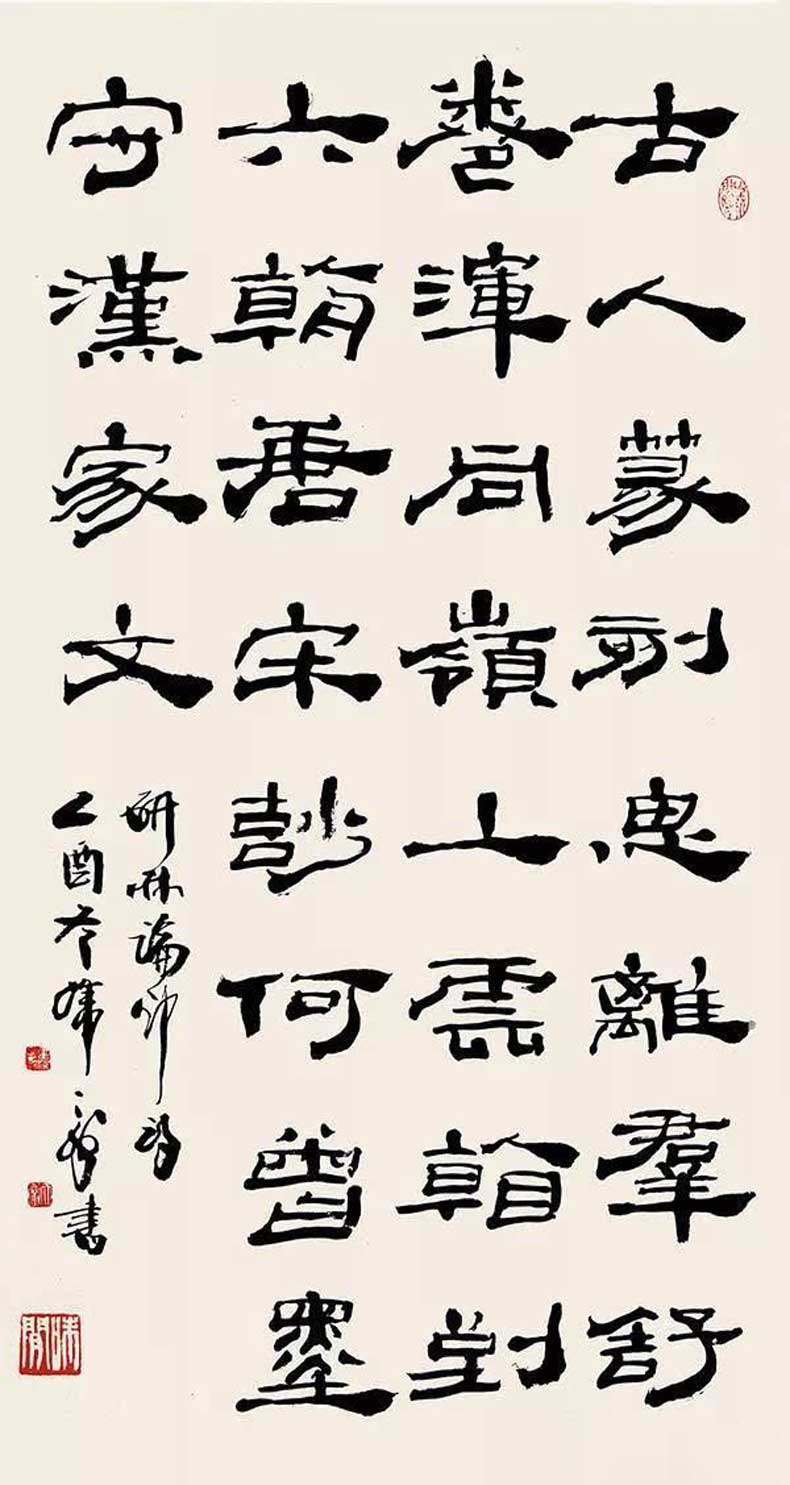 古人篆刻思離羣舒
卷渾同嶺上雲看到
六朝唐宋妙何曾墨
守漢家文
研林論印詩
乙酉冬書
味閒